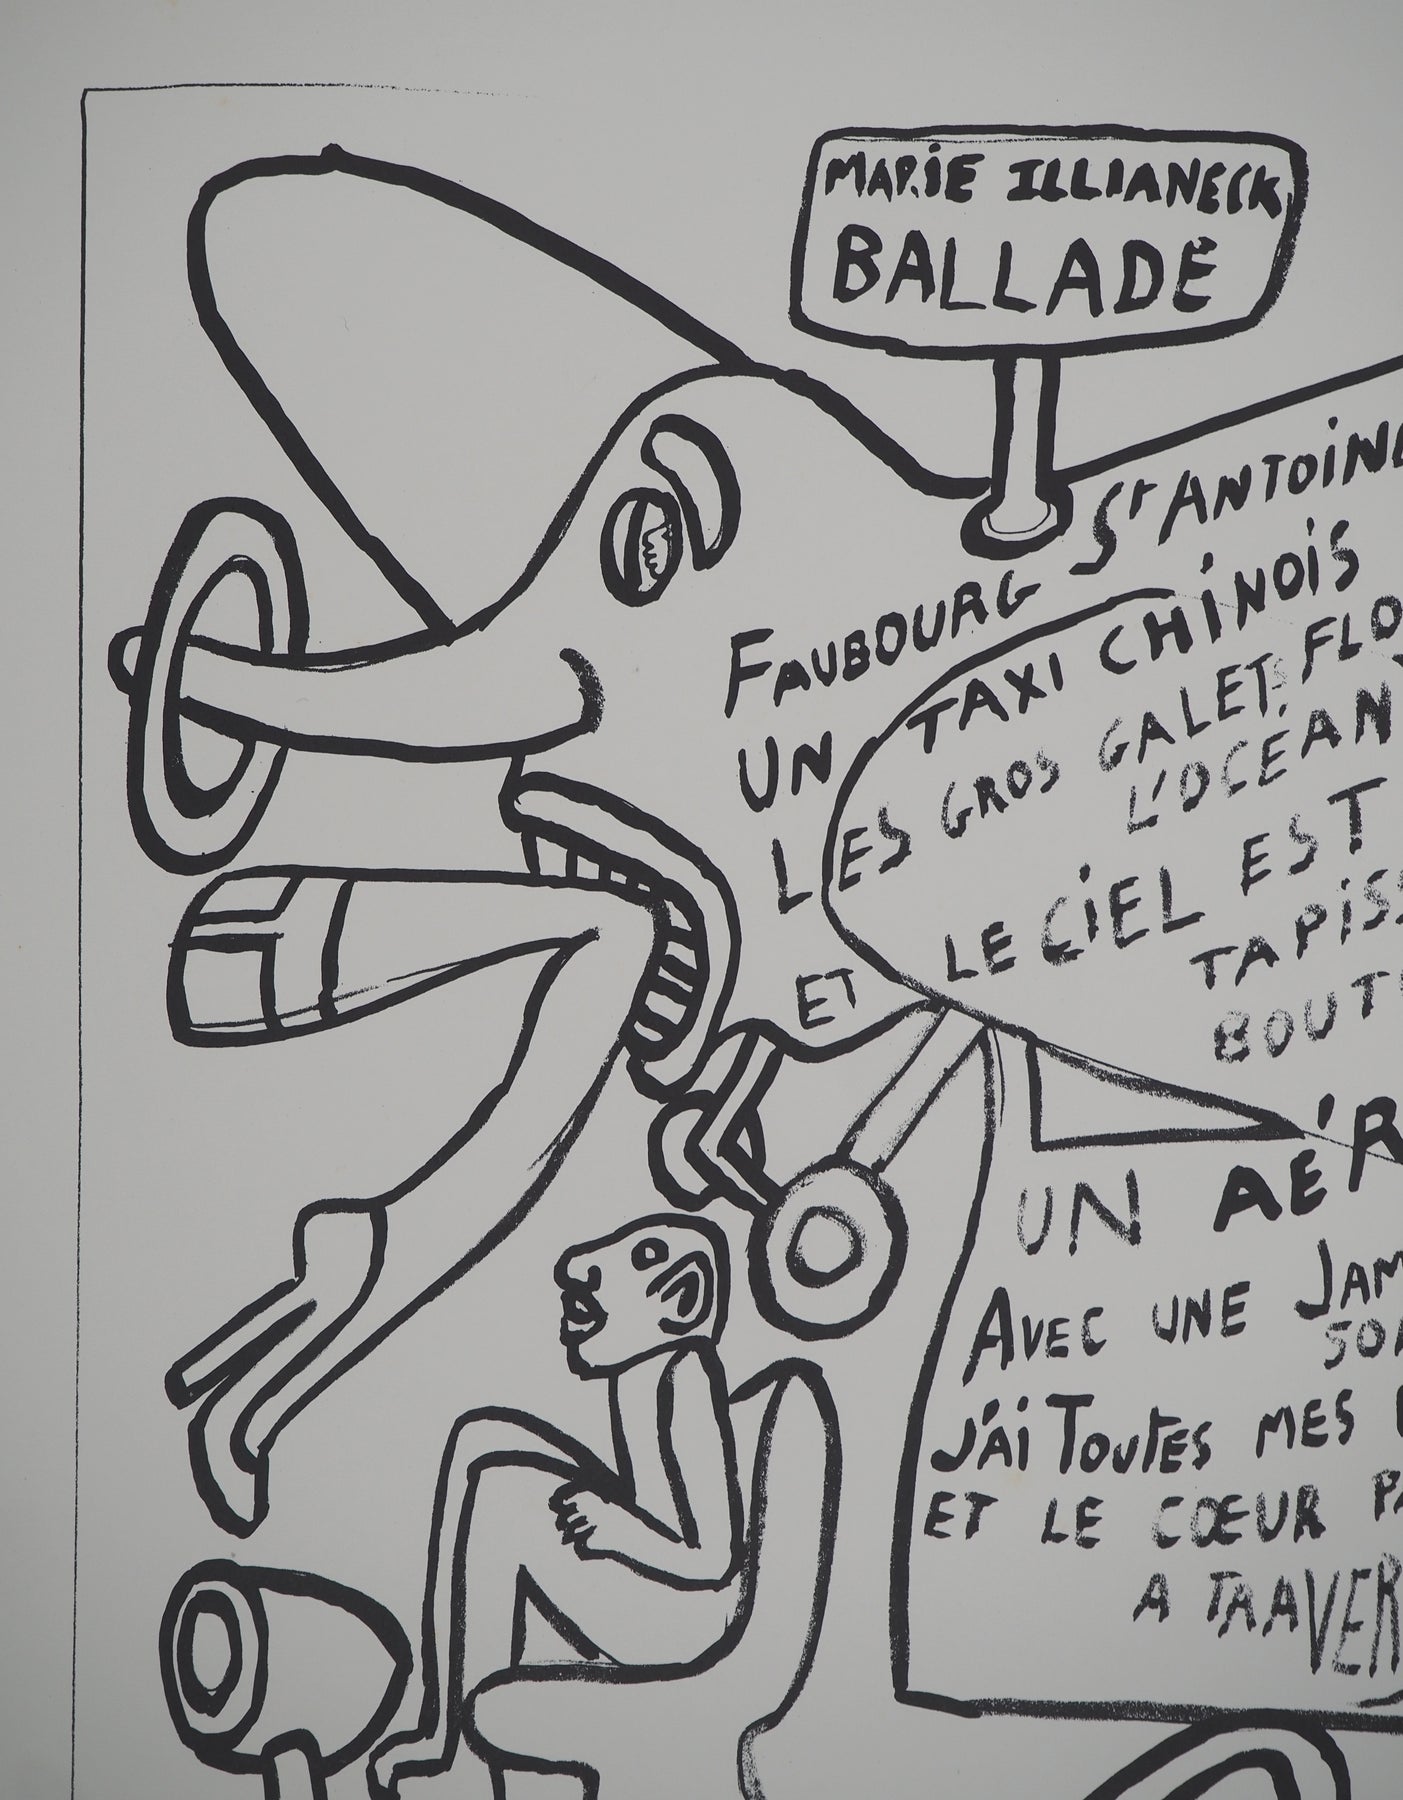 MARIE ILLIANECK
BALLADE
FAUBOURG St ANTOINE
UN TAXI CHINOIS
LES GROS GALETS FLO
L'OCÉAN
ET LE CIEL EST
TAPISS
BOUT
UN AÉR
AVEC UNE JAM
SO
J'AI TOUTES MES
ET LE CŒUR PA
A TRAVER